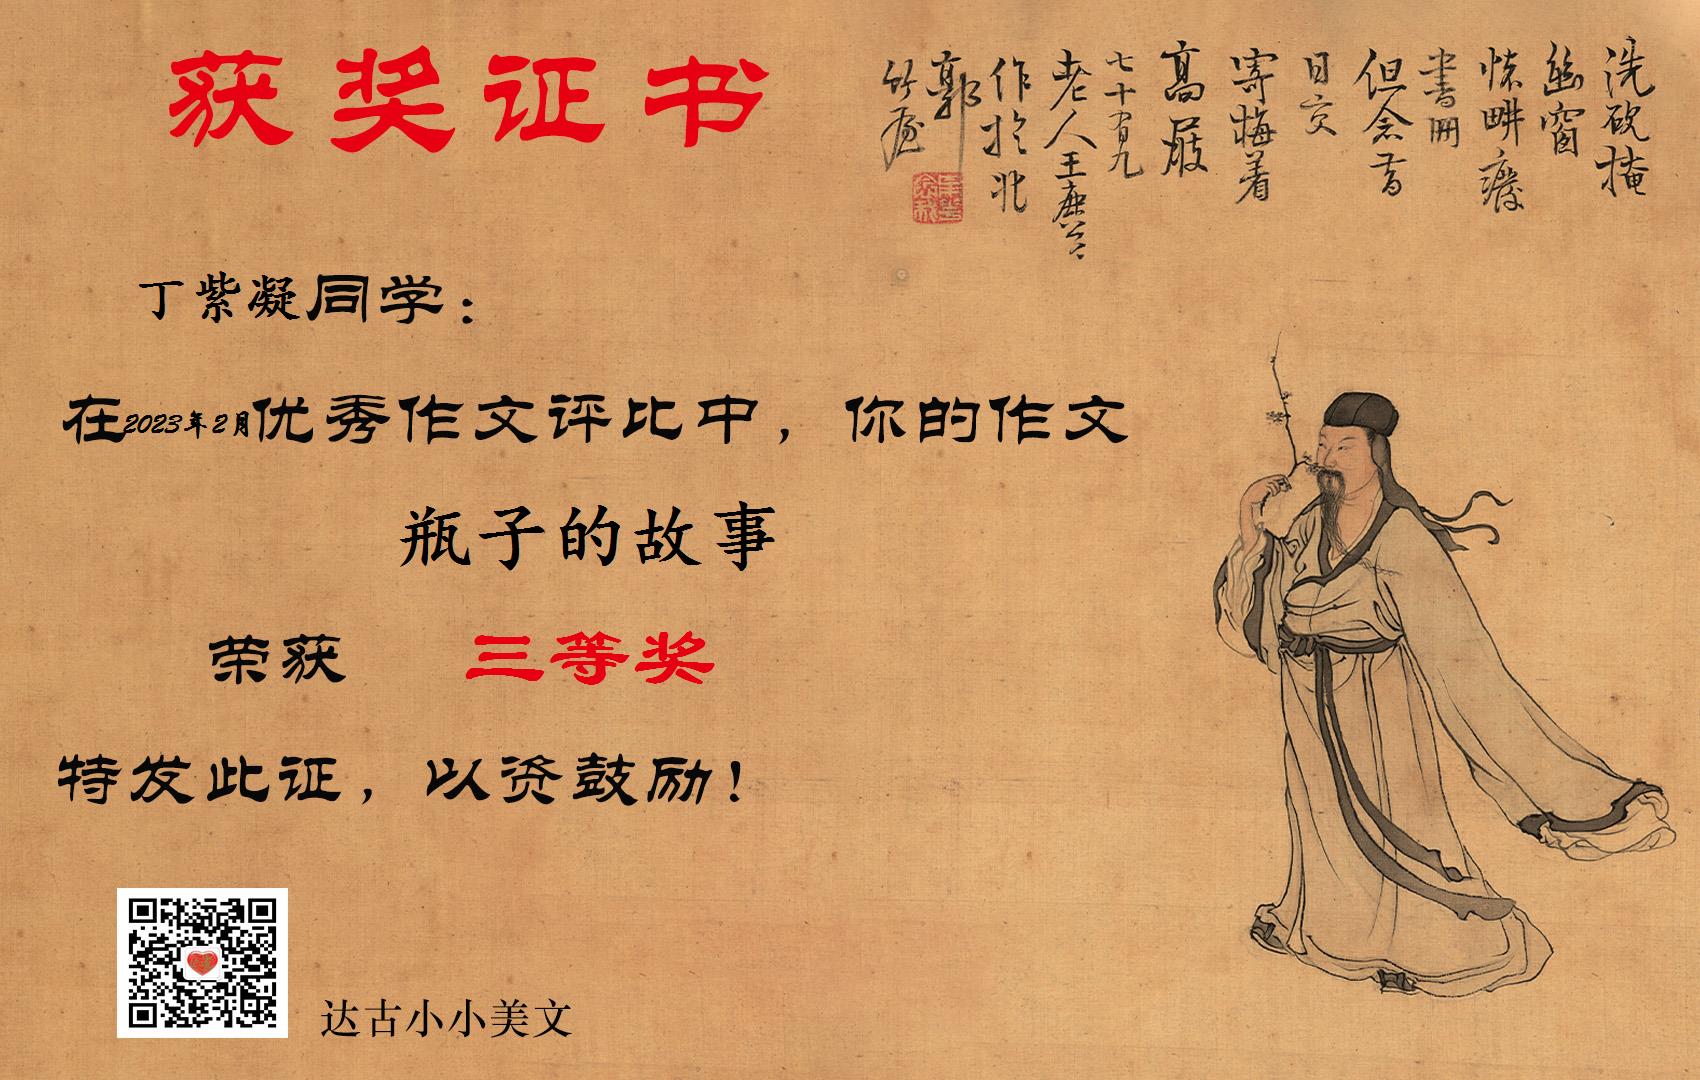 获奖证书
洗砚掩
幽窗
怯畊癈
書冊
但念昔
日交
寄梅着
高屐
七十有九
老人王鹿公
作於北
郭
竹
丁紫凝同学：
在2023年2月优秀作文评比中，你的作文
瓶子的故事
荣获 三等奖
特发此证，以资鼓励！
达古小小美文